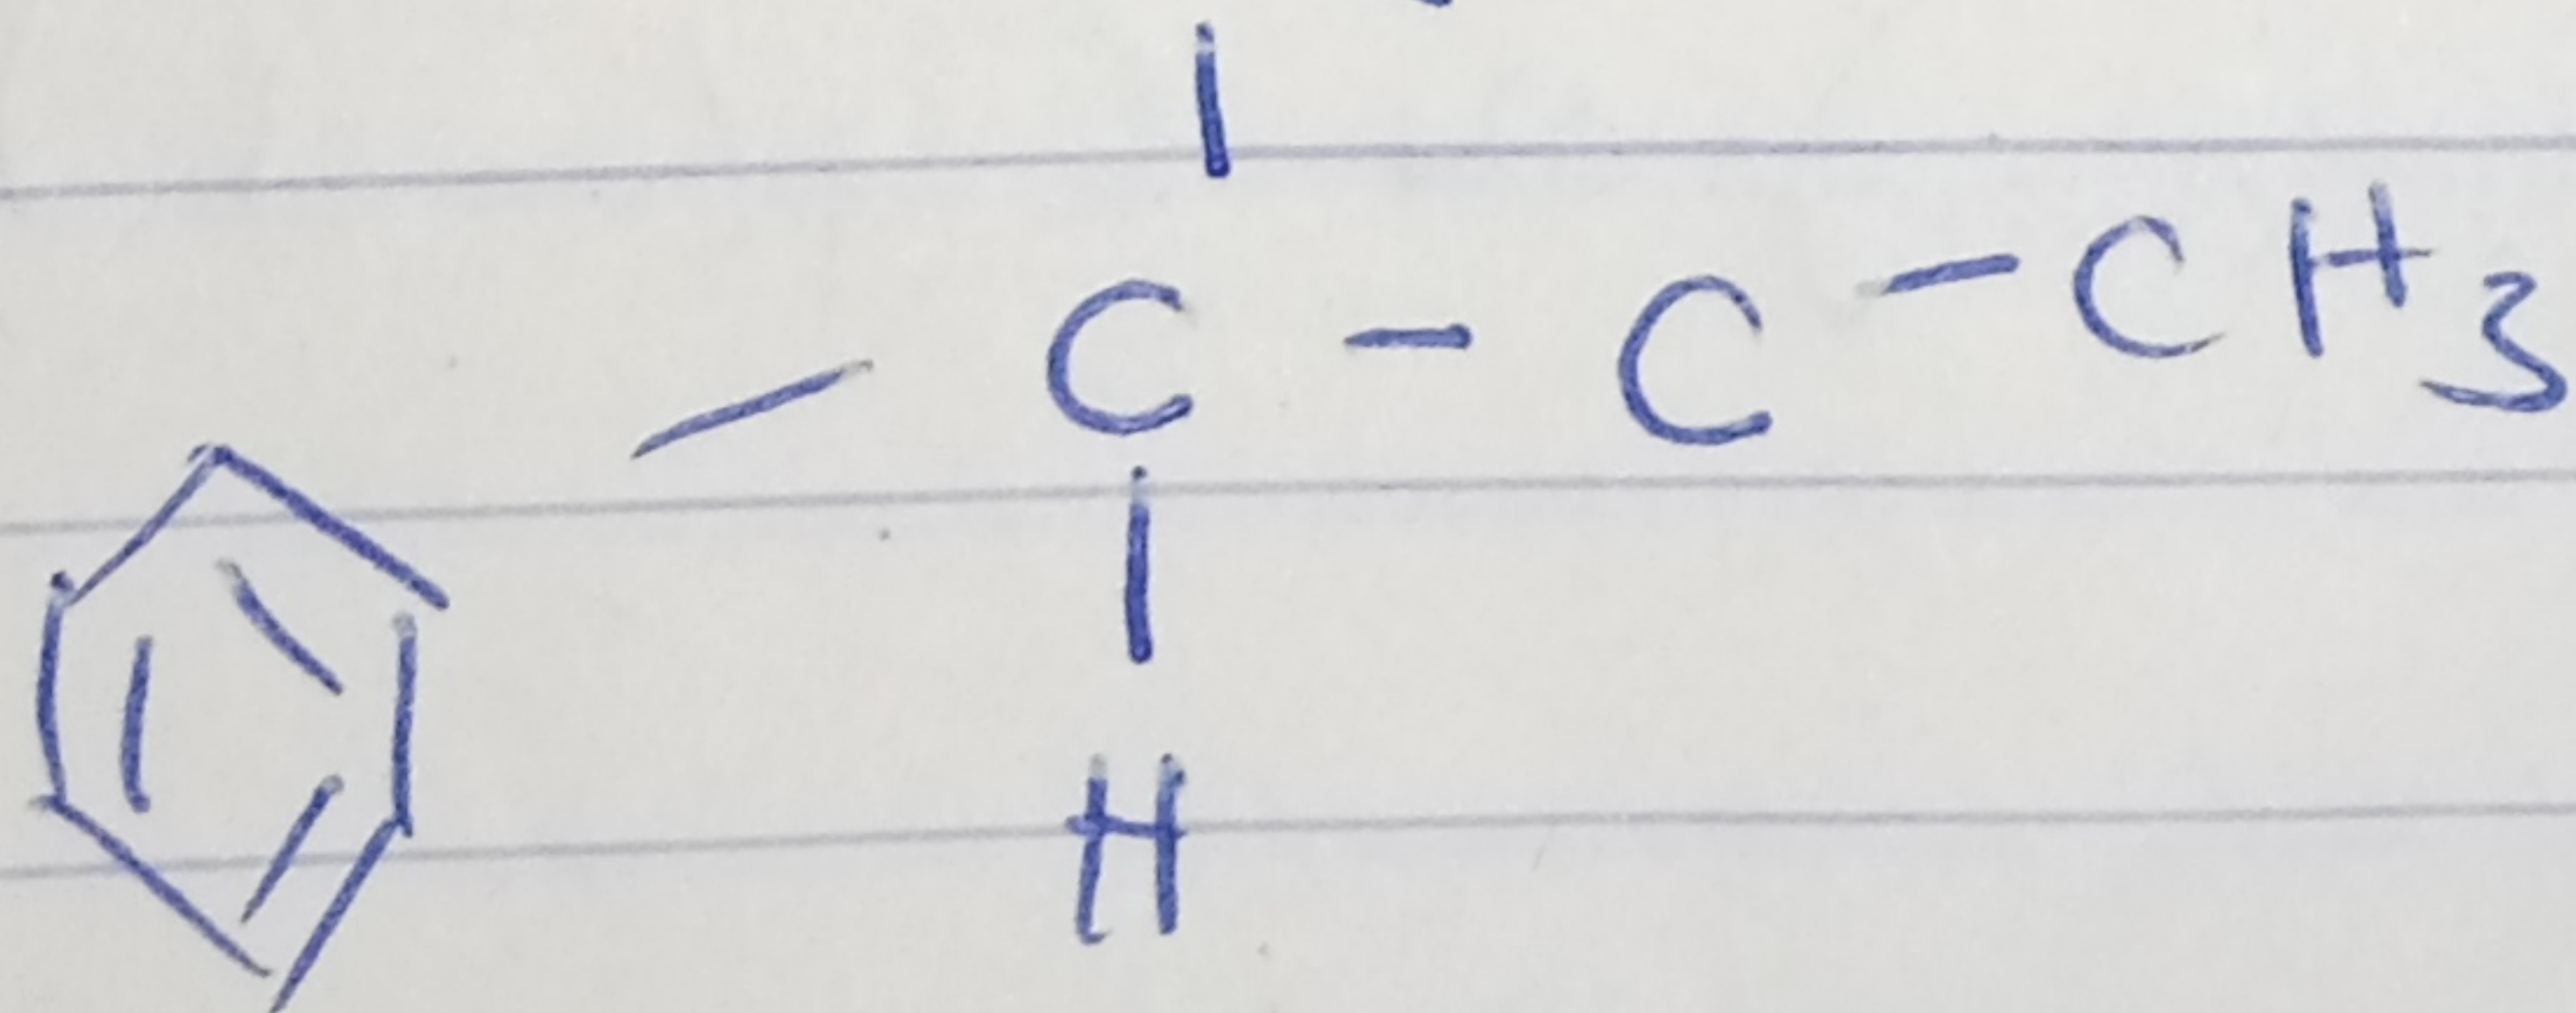 C - C - CH3
H